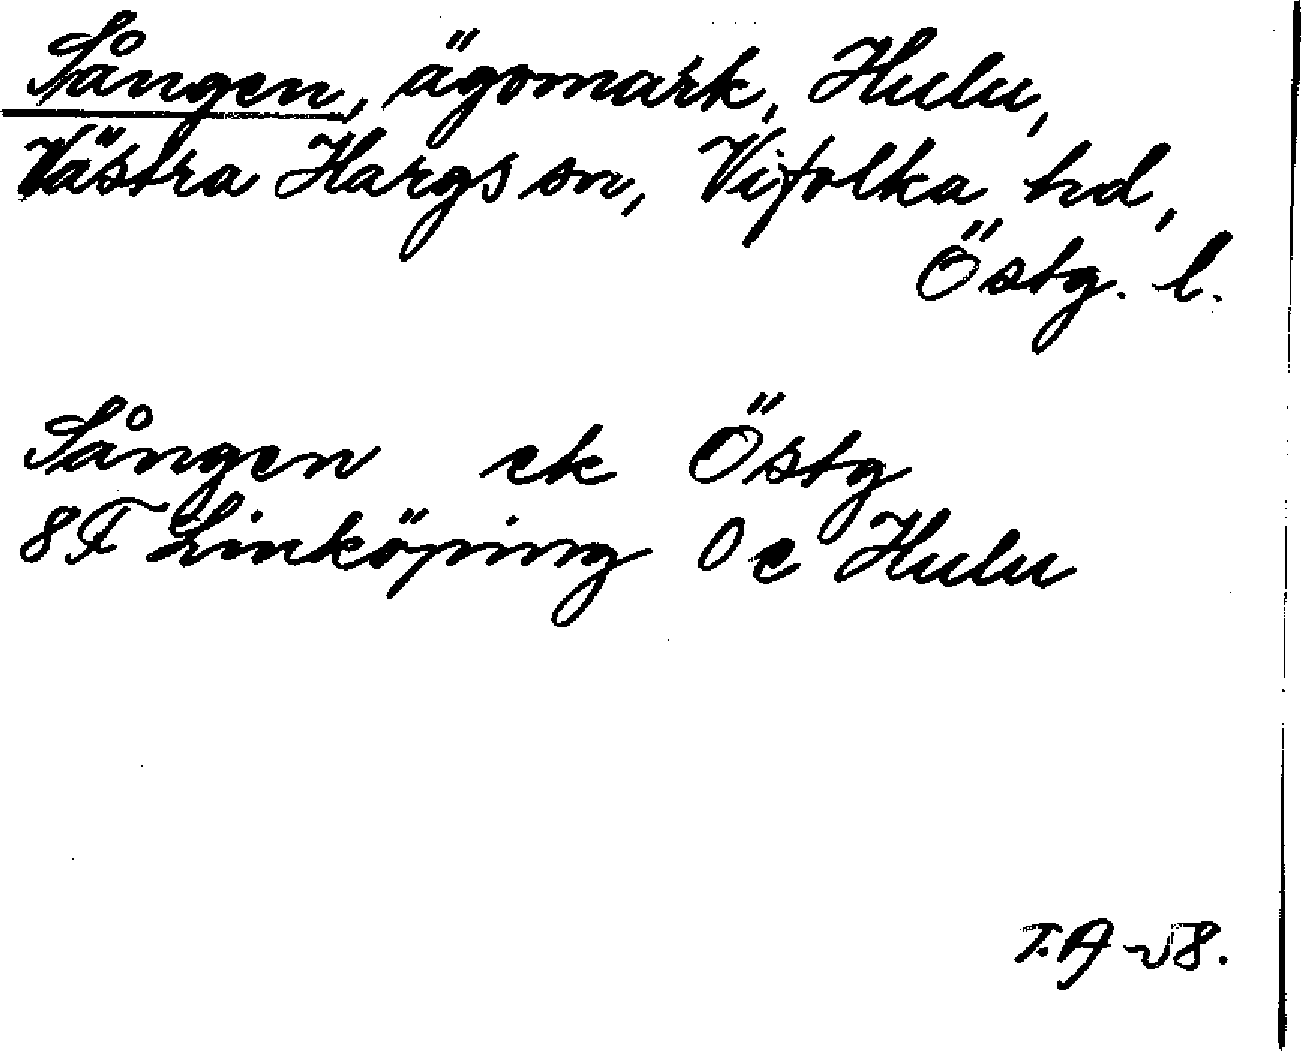 Sången, ägomark, Hulu,
Västra Hargs sn, Vifolka hd,
Östg. l.
Sången ek Östg
8F Linköping 0e Hulu
T.A -58.